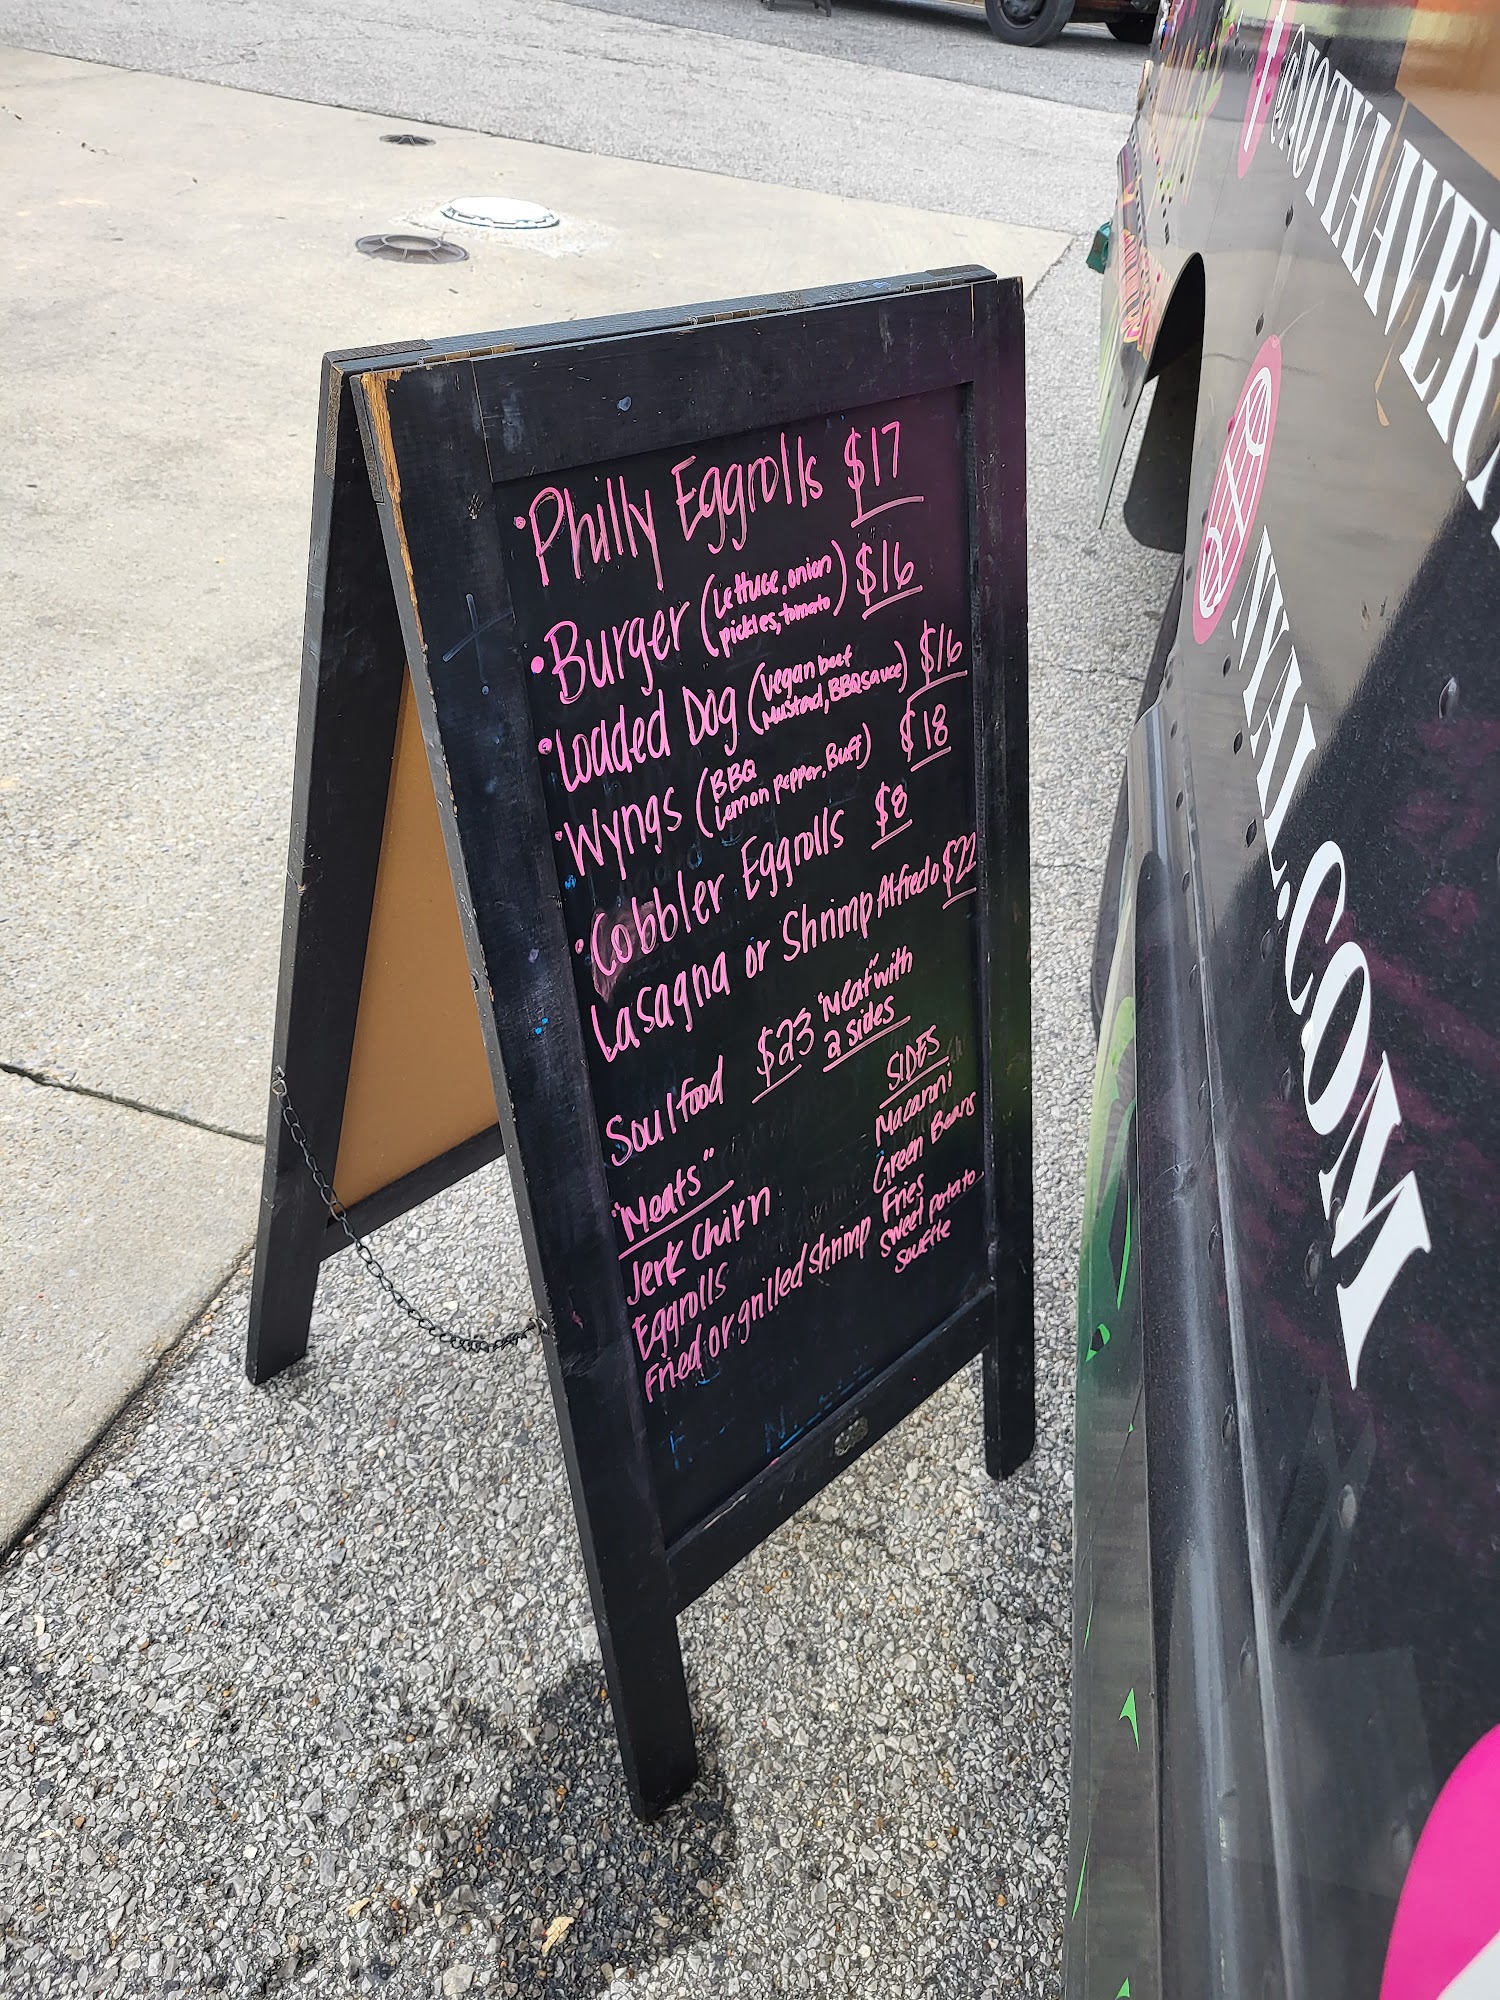 •Philly Eggrolls $17
•Burger (Lettuce, onion
pickles, tomato) $16
•Loaded Dog (Vegan beef
Mustard, BBQ sauce) $16
•Wyngs (BBQ
Lemon pepper, Buff) $18
•Cobbler Eggrolls $8
Lasagna or Shrimp Alfredo $22
Soulfood $23 "Meat" with
2 sides
"Meats"
Jerk Chik'n
Eggrolls
Fried or grilled shrimp
SIDES
Macaroni
Green Beans
Fries
Sweet potato
souffle
@NOTYAAVER
NYAL.COM